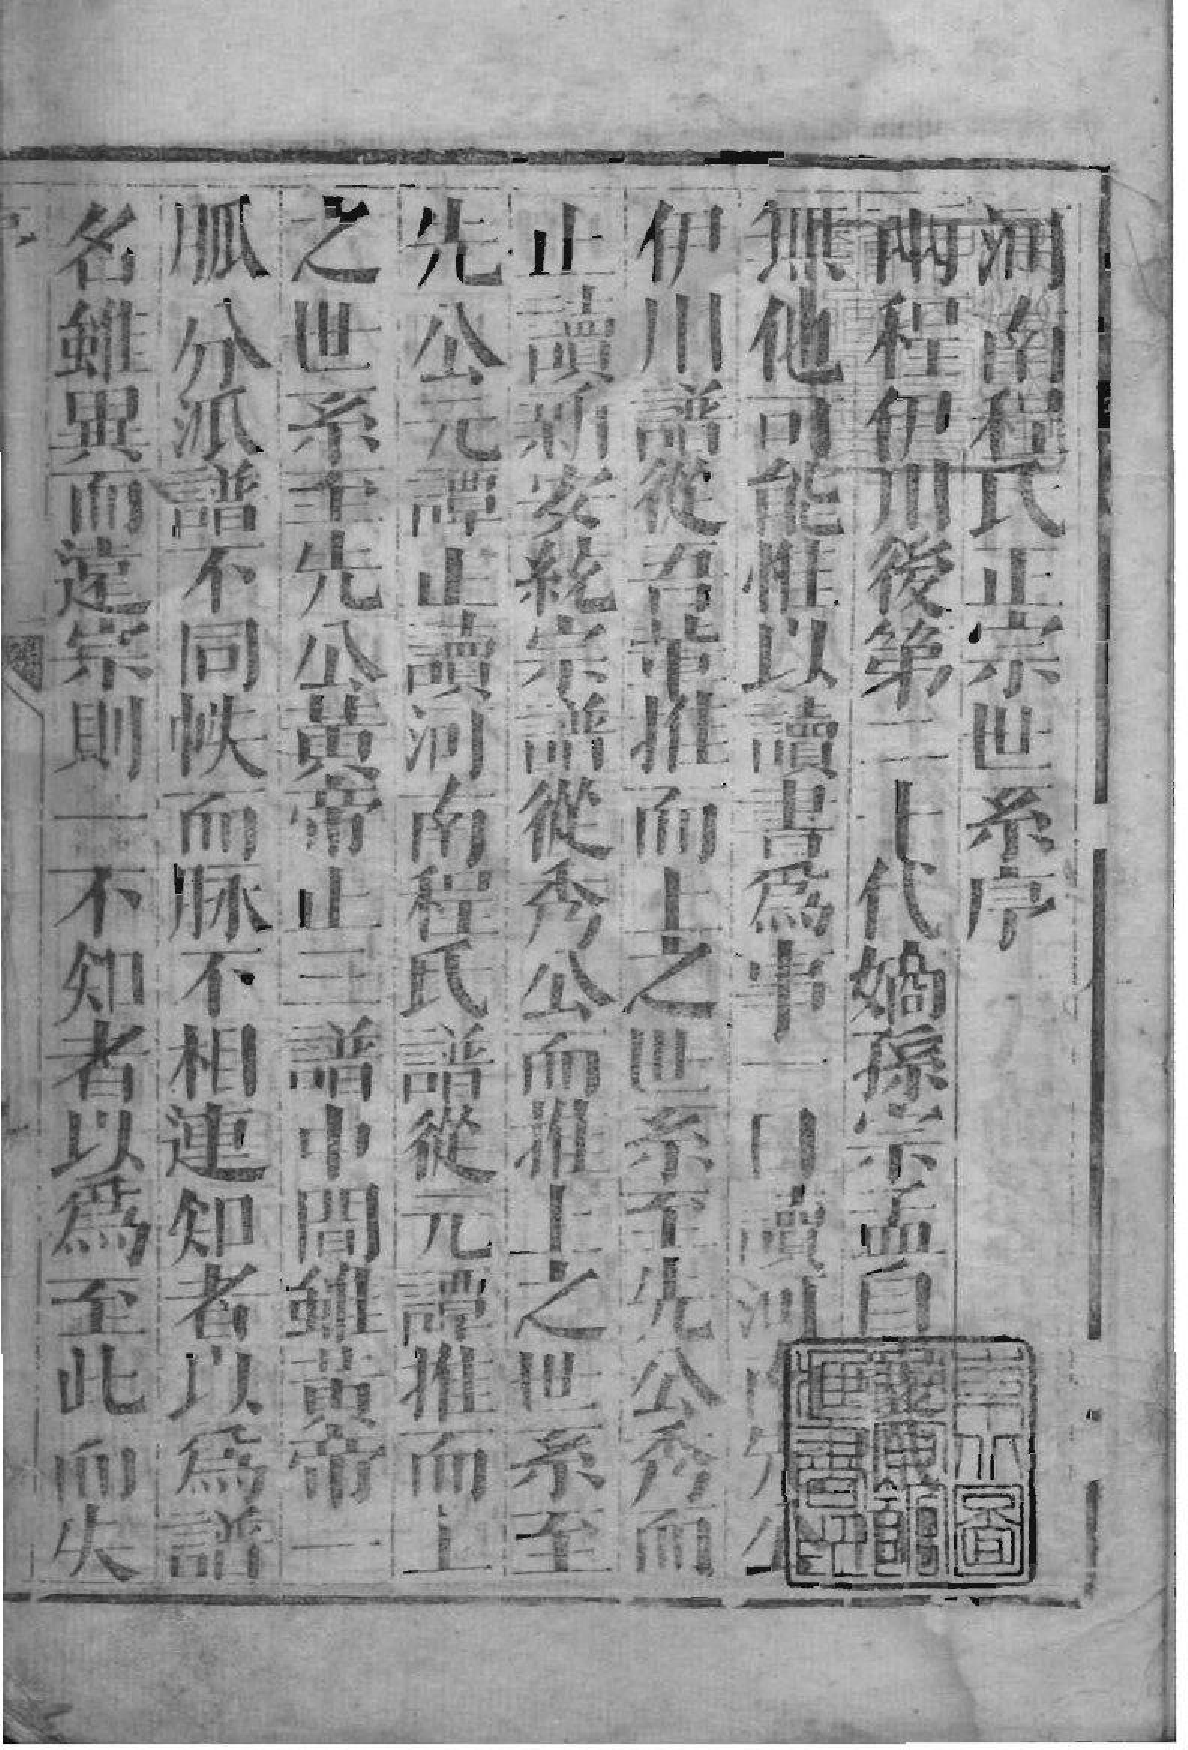 河南程氏正宗世系序
兩程伊川後第二十代嫡孫宗孟自
無他可能惟以讀書爲事一日讀河
伊川譜從召革推而上之世系至先公秀而
止讀新安統宗譜從秀公而推上之世系至
先公元譚止讀河南程氏譜從元譚推而上
之世系至先公黃帝止三譜中間雖黃帝一
脈分派譜不同帙而脉不相連知者以爲譜
名雖異而違宗則一不知者以爲至此而失